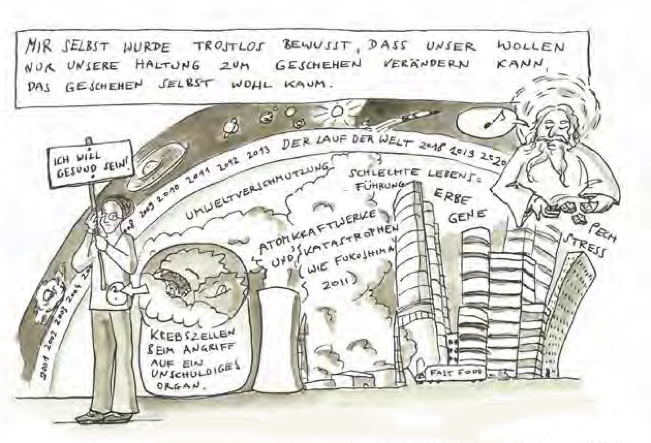 MIR SELBST WURDE TROSTLOS BEWUSST, DASS UNSER WOLLEN
NUR UNSERE HALTUNG ZUM GESCHEHEN VERÄNDERN KANN,
DAS GESCHEHEN SELBST WOHL KAUM.
ICH WILL
GESUND SEIN!
2001 2002 2003 2004
2009 2010 2011 2012 2013 DER LAUF DER WELT 2018 2019 2020
UMWELTVERSCHMUTZUNG
SCHLECHTE LEBENS=
FÜHRUNG
ERBE
GENE
PECH
STRESS
ATOMKRAFTWERKE
UND KATASTROPHEN
WIE FUKOSHIMA
2011
KREBSZELLEN
BEIM ANGRIFF
AUF EIN
UNSCHULDIGES
ORGAN.
FAST FOOD